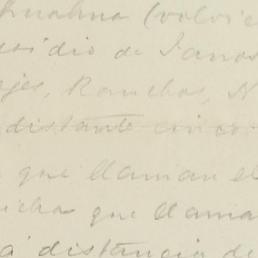 (volvie
sidio de Janos
jes, Ranchos, N
distante cinco
que llaman el
que llama
á distancia de